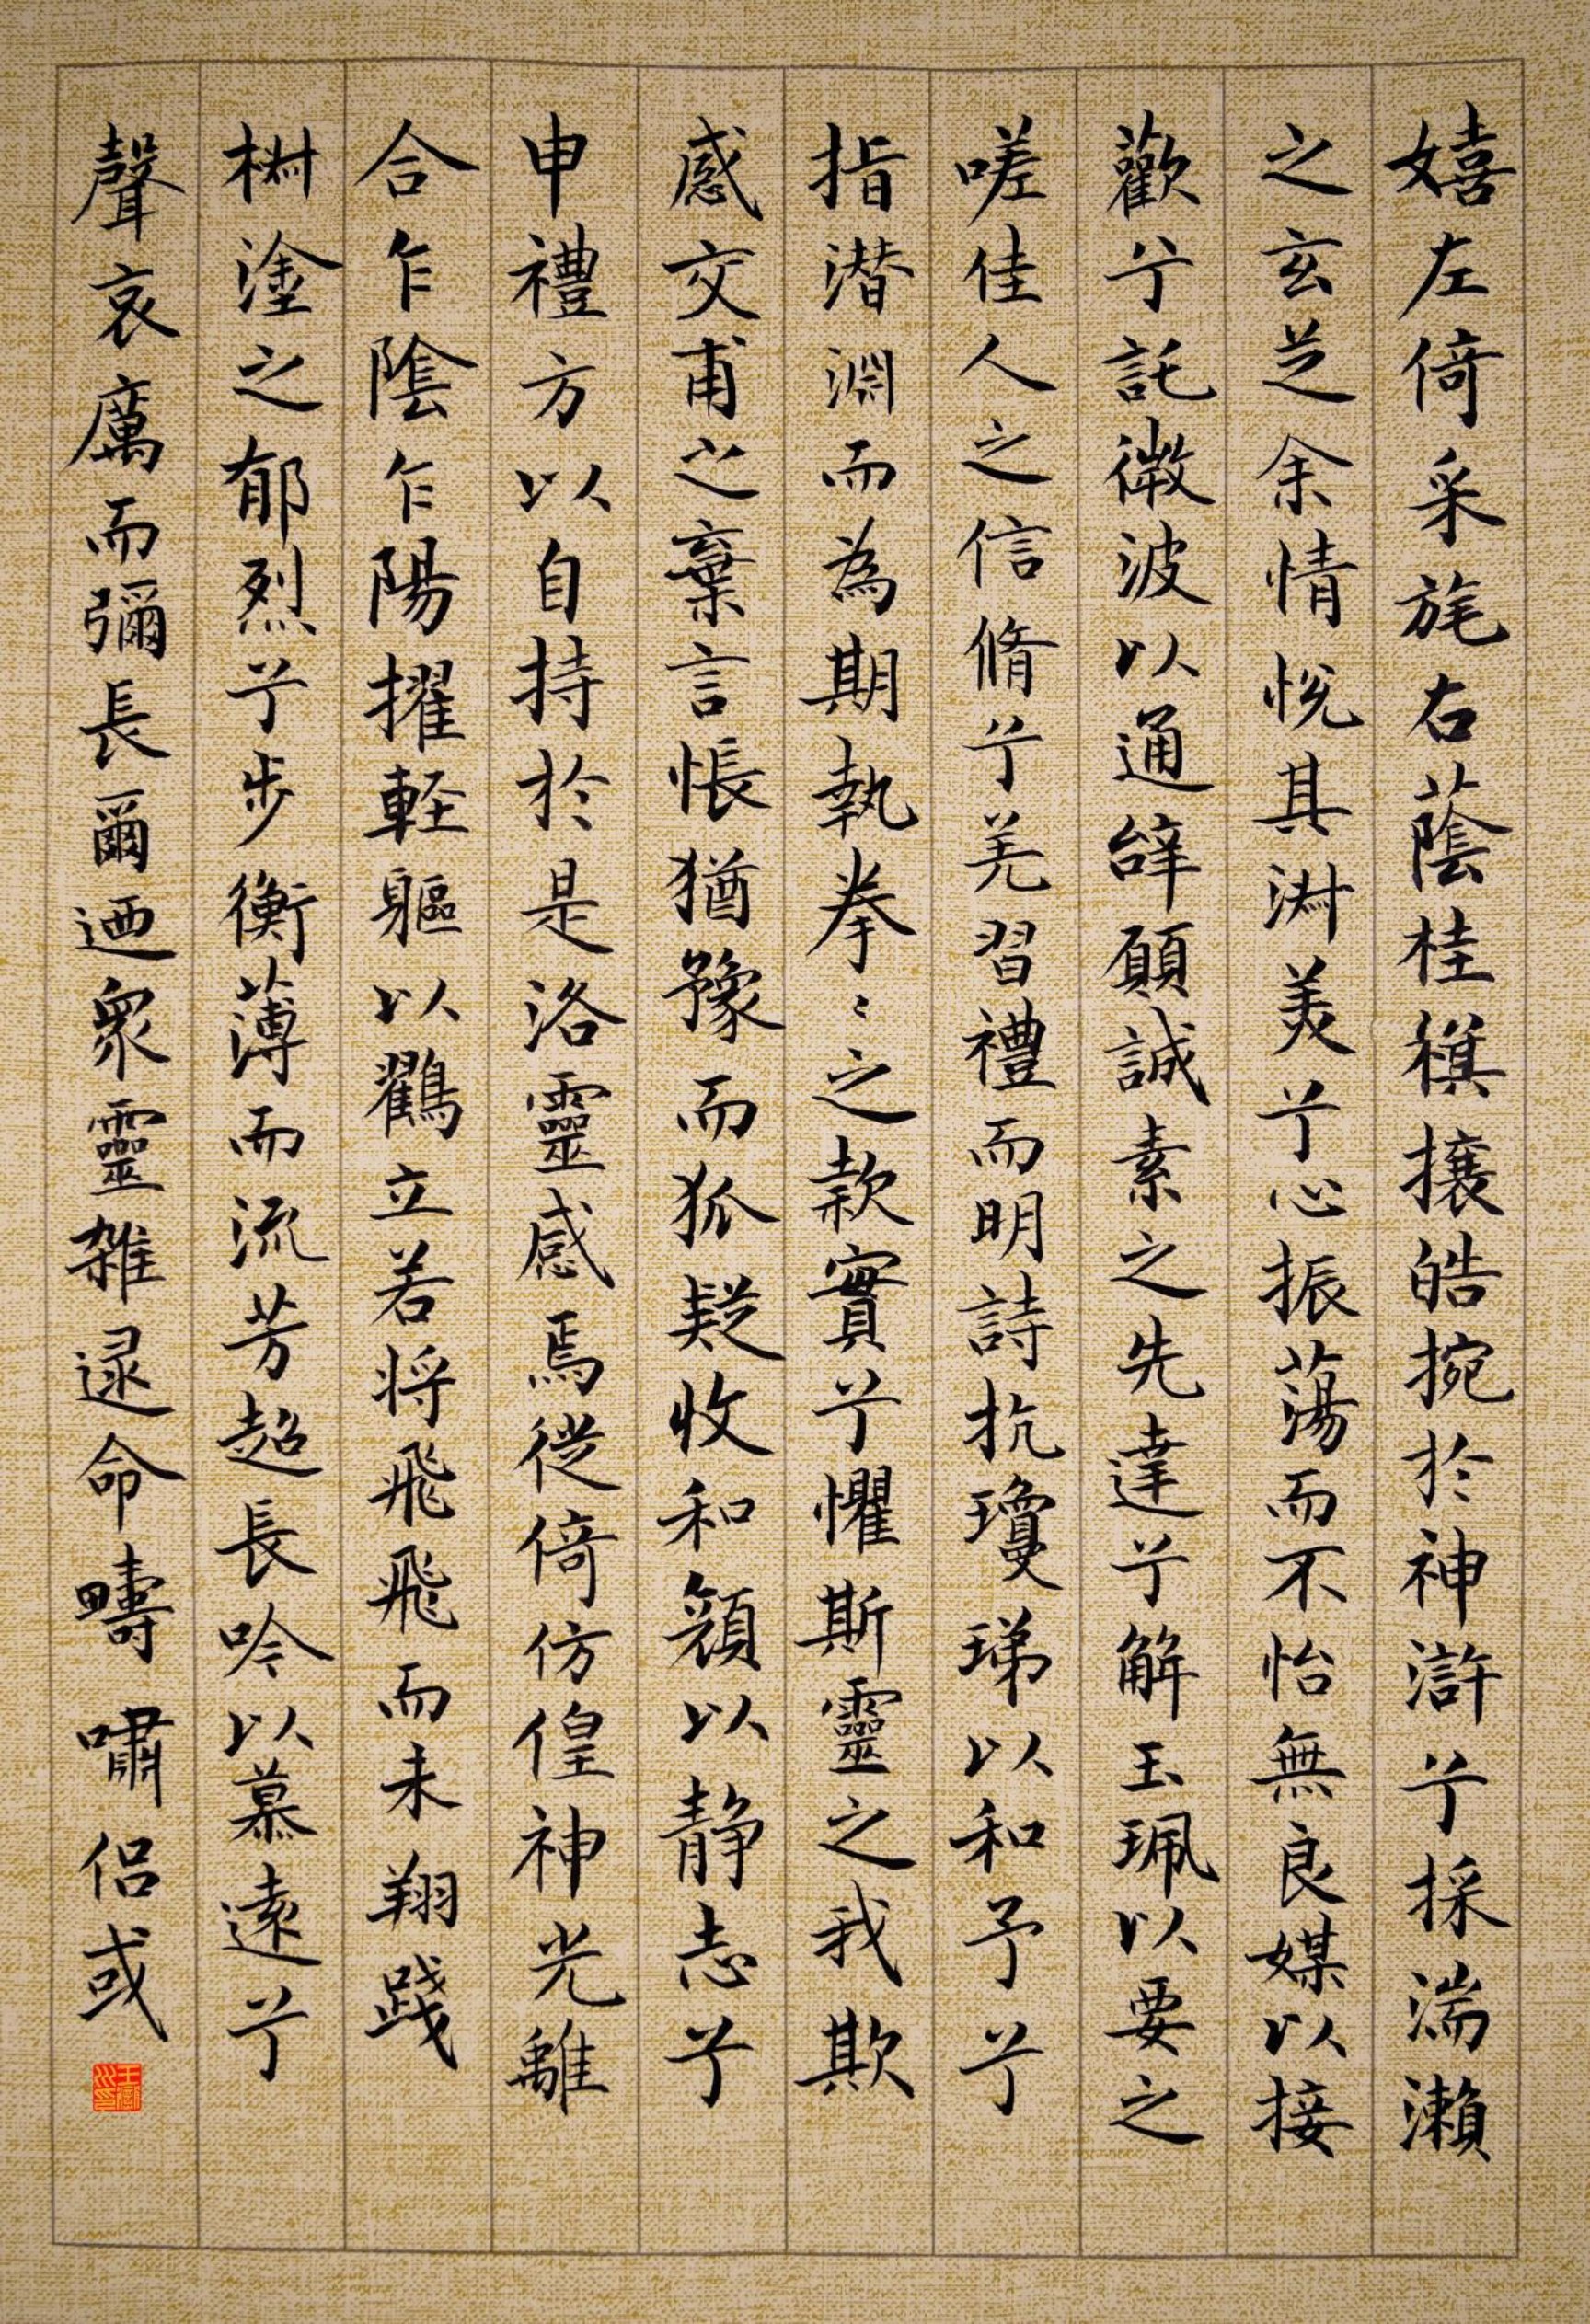 嬉左倚采旄右蔭桂旗攘皓捥於神滸兮採湍瀨
之玄芝余情悅其淑美兮心振蕩而不怡無良媒以接
歡兮託微波以通辭願誠素之先達兮解玉珮以要之
嗟佳人之信脩兮羌習禮而明詩抗瓊珶以和予兮
指潜淵而為期執拳〻之款實兮懼斯靈之我欺
感交甫之棄言悵猶豫而狐疑收和顏以静志兮
申禮方以自持於是洛靈感焉從倚仿偟神光離
合乍陰乍陽擢輕軀以鸖立若将飛飛而未翔踐
椒塗之郁烈兮步衡薄而流芳超長吟以慕遠兮
聲哀厲而彌長爾迺衆靈雜逯命疇嘯侶或